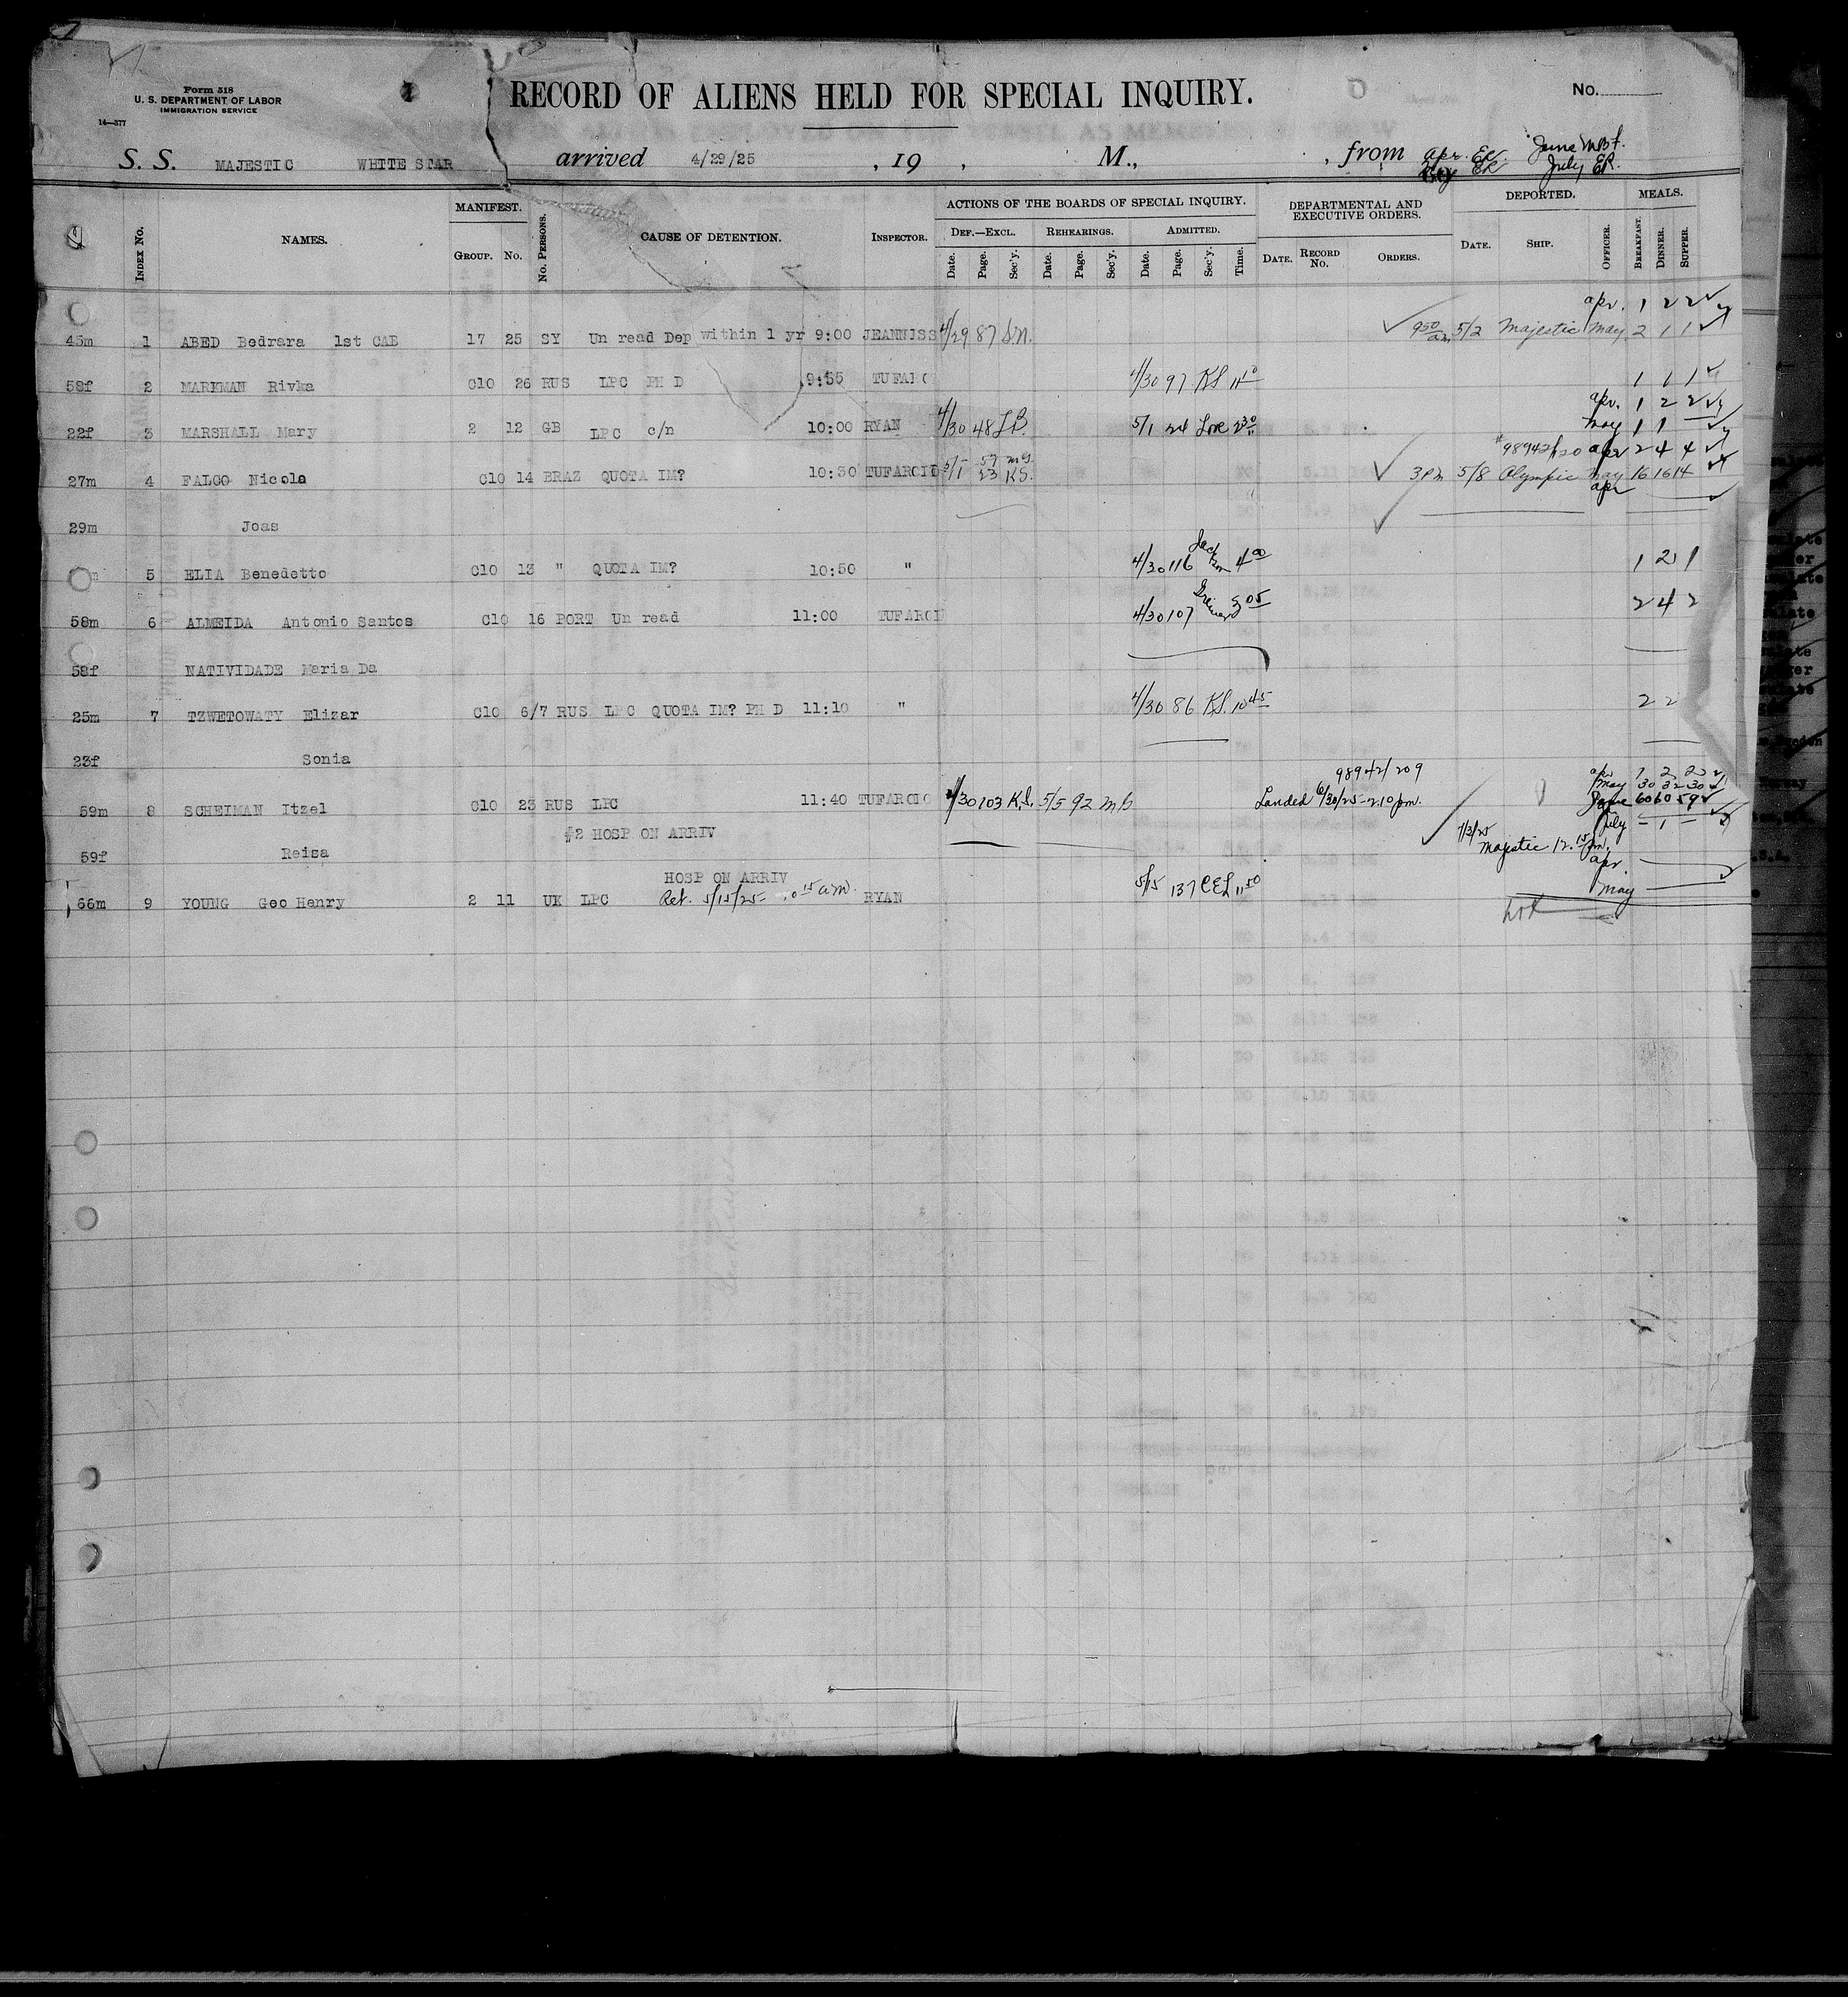 Form 518
U. S. DEPARTMENT OF LABOR
IMMIGRATION SERVICE
14—577
RECORD OF ALIENS HELD FOR SPECIAL INQUIRY.
No.
S. S. MAJESTIC WHITE STAR arrived 4/29/25 , 19 , M., , from Apr. ER. June
ER July, ER.
INDEX No. NAMES. MANIFEST. GROUP. No. No. PERSONS. CAUSE OF DETENTION. INSPECTOR.
ACTIONS OF THE BOARDS OF SPECIAL INQUIRY. DEF.—EXCL. Date. Page. Sec'y. REHEARINGS. Date. Page. Sec'y. ADMITTED. Date. Page. Sec'y. Time.
DEPARTMENTAL AND EXECUTIVE ORDERS. DATE. RECORD No. ORDERS. DEPORTED. DATE. SHIP. OFFICER. MEALS. BREAKFAST. DINNER. SUPPER.
apr. 1 2 2
45m 1 ABED Bedrara 1st CAB 17 25 SY Un read Dep within 1 yr 9:00 JEANNISS 4/29 87 S.N. 9 50 am 5/2 Majestic May 2 1 1
58f 2 MARKMAN Rivka C10 26 RUS LPC PH D 9:55 TUFARO 4/30 97 KS 11 10 1 1 1
apr. 1 2 2
22f 3 MARSHALL Mary 2 12 GB LPC c/n 10:00 RYAN 4/30 48 5/1 24 Love 2 30 May 1 1
apr 2 4 4
27m 4 FALCO Nicola C10 14 BRAZ QUOTA IM? 10:30 TUFAROIO 5/1 23 KS. 3 PM 5/8 Olympic May 16 16 14
apr
29m Joas
5 ELIA Benedetto C10 13 " QUOTA IM? 10:50 " 4/30 116 4 00 1 2 1
58m 6 ALMEIDA Antonio Santos C10 16 PORT Un read 11:00 TUFAROI 4/30 107 2 4 2
58f NATIVIDADE Maria Da
25m 7 TZWETOWATY Elizar C10 6/7 RUS LPC QUOTA IM? PH D 11:10 " 4/30 86 KS. 10 45 2 2
23f Sonia
98942/209 apr 1 2 2
May 30 32 30
59m 8 SCHEIMAN Itzel C10 23 RUS LPC 11:40 TUFAROIO 4/30 103 K.S. 5/5 92 MG Landed 6/30/25 - 2.10 pm. June 60 60 59
#2 HOSP ON ARRIV July - 1 -
7/3/25
59f Reisa Majestic 12.15 pm.
apr.
HOSP ON ARRIV
66m 9 YOUNG Geo Henry 2 11 UK LPC Ret. 5/15/25 RYAN 5/15 137 CEL 11 50 May